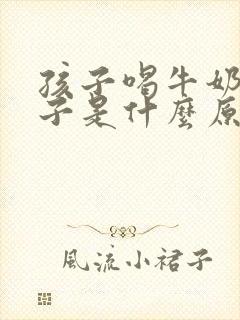 孩子喝牛奶
子是什麼原
風流小裙子